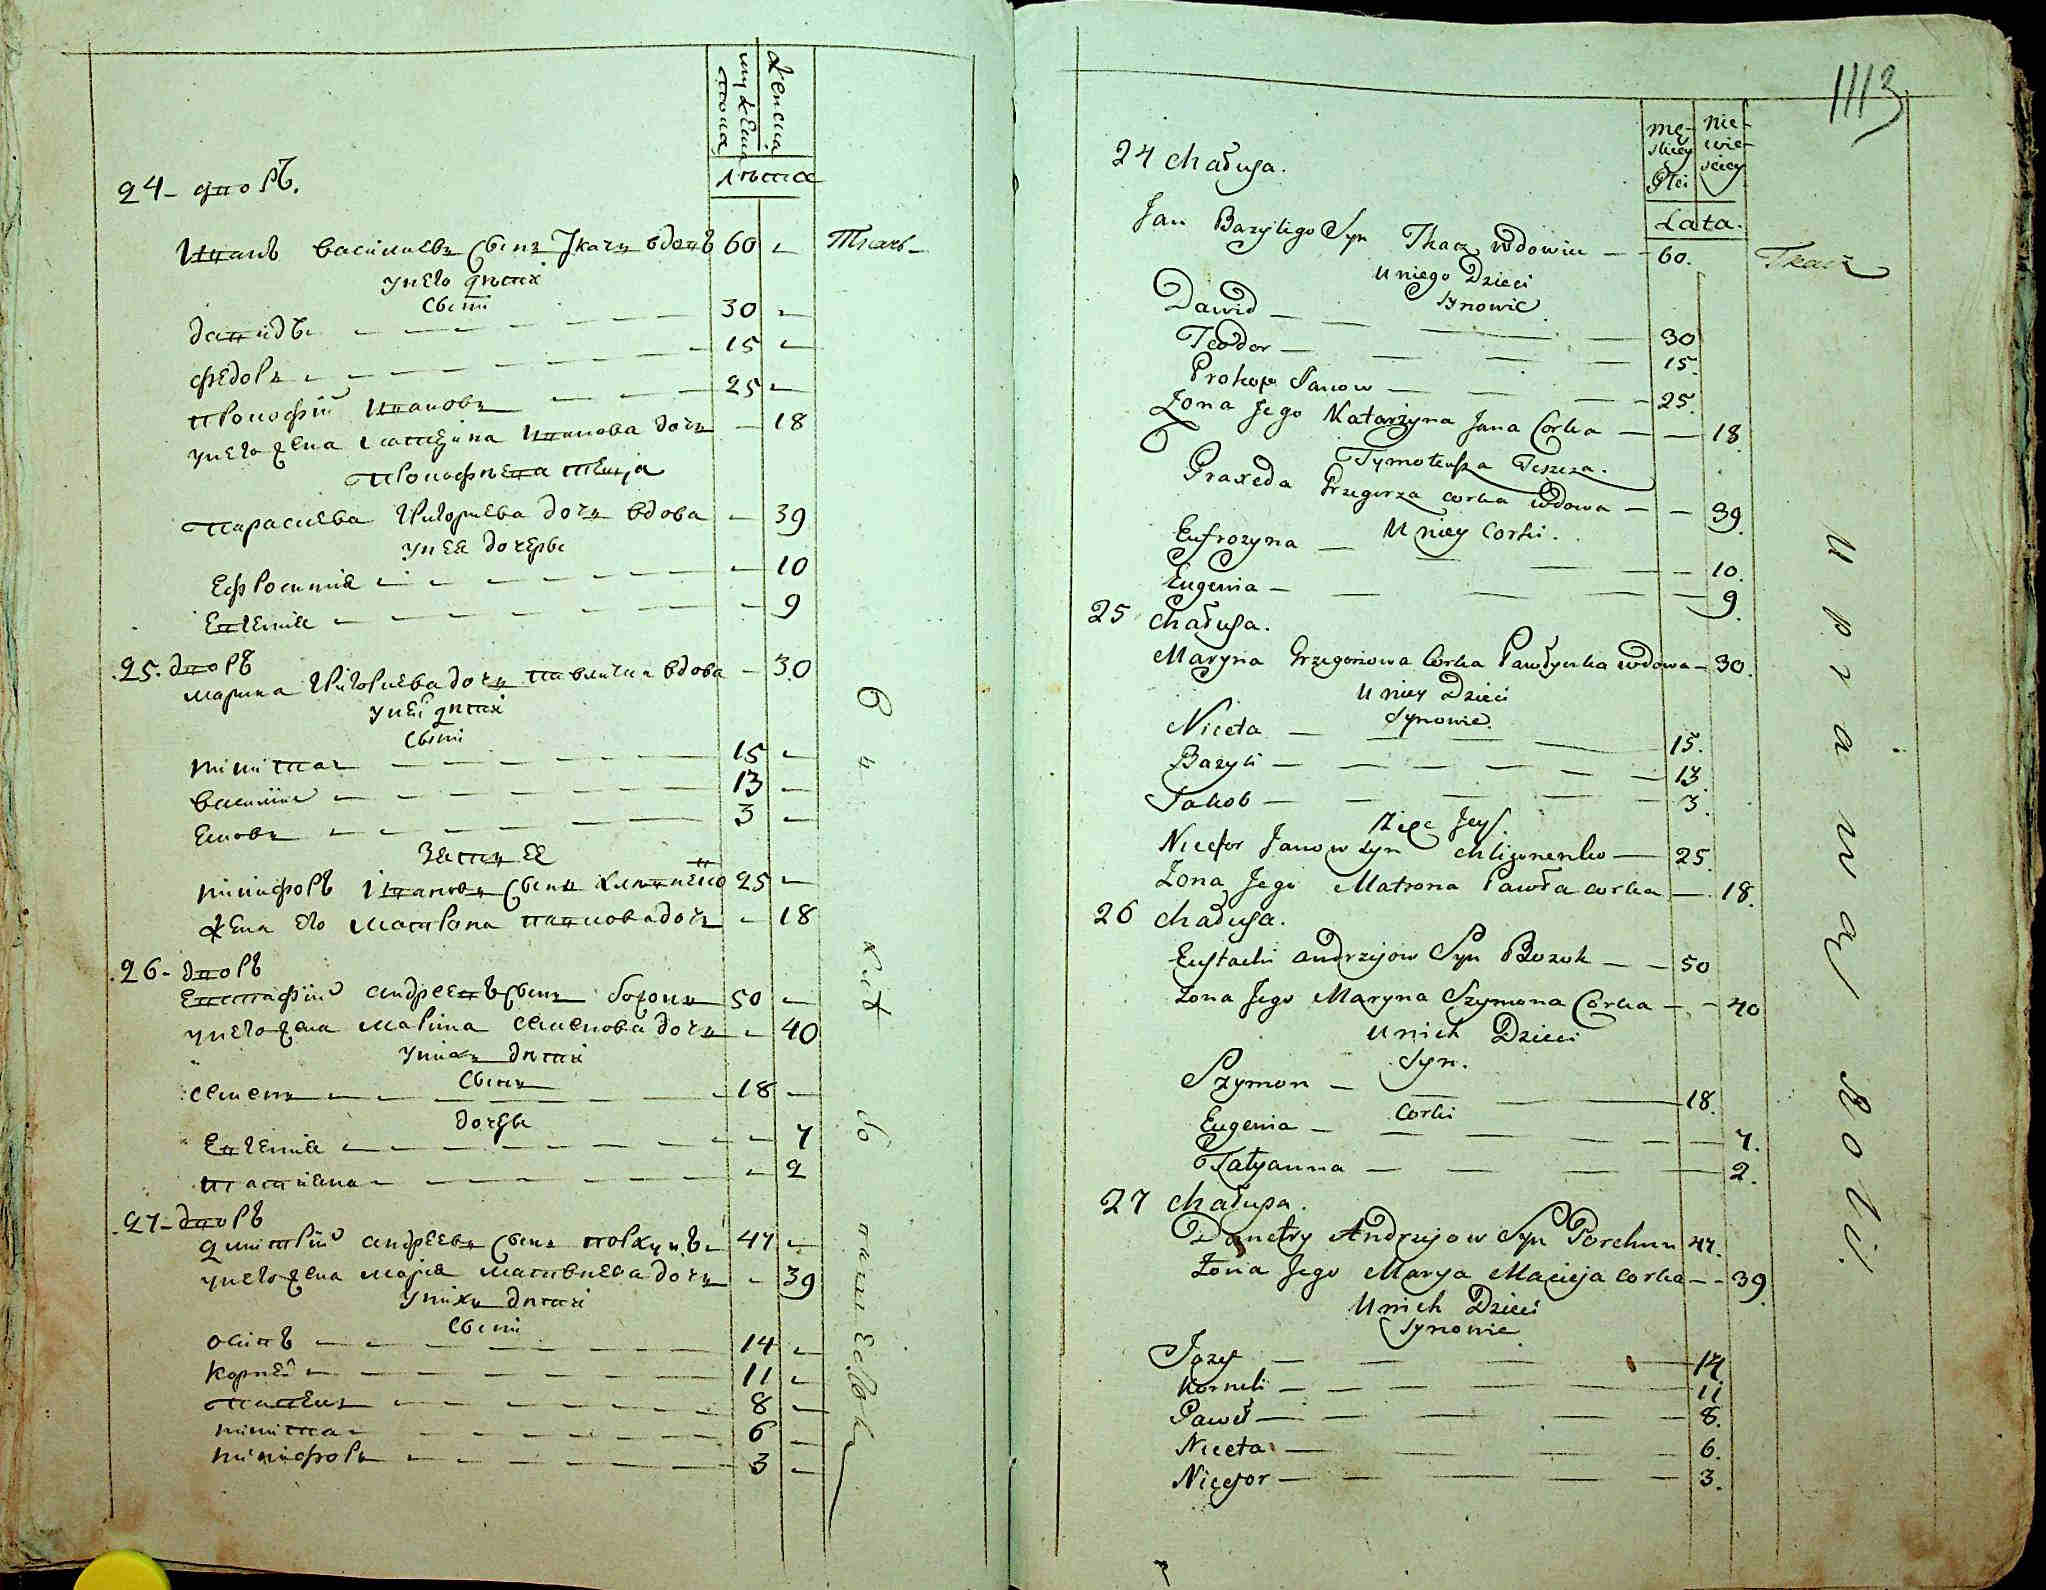 женска
мужеска
пола
Лѣта
24 - дворъ.
Иванъ васильевъ сынъ Ткачъ вдовъ 60 - Ткачь -
у него дѣтей
сыны
давидъ - 30 -
Федоръ - 15 -
Прокофій Ивановъ - 25 -
у него жена катерина Иванова дочь - 18
Прокофьева теща
Парасиева Григорьева дочь вдова - 39
у нее дочерьи
Ефросиния - 10
Евгения - 9
25. дворъ
марина Григорьева дочь вдова - 30
у неі дѣтей
сыны
никита - 15 -
василий - 13 -
Яковъ - 3 -
Зять ее
никифоръ Ивановъ сынъ 25 -
жена его матрона павлова дочь - 18
26 - дворъ
Евстафій андреевъ сынъ бозокъ 50 -
у него жена марина семенова дочь - 40
у нихъ дѣтей
сынъ
семенъ - 18 -
дочерьи
Евгения - 7
татияна - 2
27 - дворъ
дмитрій андреевъ сынъ 47 -
у него жена мария матвиева дочь - 39
у нихъ дѣтей
сыны
осипъ - 14 -
корней - 11 -
павелъ - 8 -
никита - 6 -
никифоръ - 3 -
1113
męskiey płci
niewieściey
Lata.
24 chałupa.
Jan Bazyligo Syn Tkacz, wdowiec - 60. Tkacz
U niego Dzieci
Synowie.
Dawid - 30
Teodor - 15.
Prokop Janow - 25.
Żona Jego Katarzyna Jana Corka - 18
Teszcza.
Praxeda Grzegorza corka wdowa - 39.
U niey Corki.
Eufrozyna - 10.
Eugenia - 9.
25 chałupa.
Maryna Grzegorzowa Corka wdowa - 30.
U niey Dzieci
Synowie.
Niceta - 15.
Bazyli - 13
Jakob - 3.
Zięć Jey.
Nicefor Janow Syn - 25.
Żona Jego Matrona Pawła corka - 18.
26 chałupa.
Eustachi Andrzejow Syn Bozok - 50
Żona Jego Maryna Szymona Corka - 40
U nich Dzieci
Syn.
Szymon - 18.
Corki
Eugenia - 7.
Tatyanna - 2.
27 chałupa.
Dmetry Andrzejow Syn Porchun 47.
Żona Jego Marya Macieja corka - 39.
U nich Dzieci
Synowie
Jozef - 14
Korneli - 11
Paweł - 8.
Niceta - 6.
Nicefor - 3.
uprawą Roli.